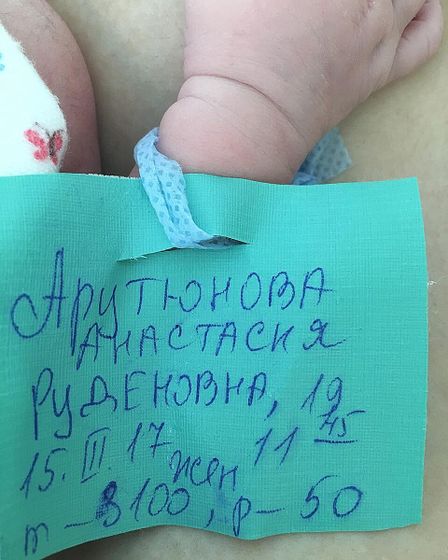 Арутюнова
Анастасия
Руденовна, 19
15. III. 17 жен 11 45
m – 3100, р – 50